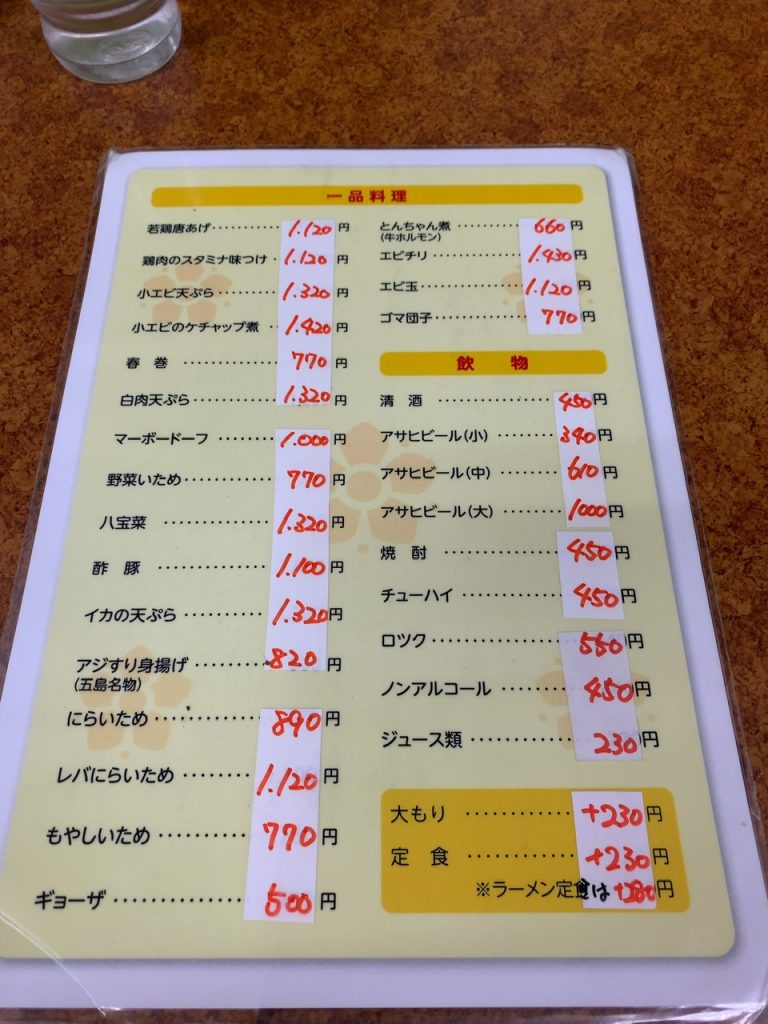 一品料理
若鶏唐あげ・・・・・・・・・・1.120円
鶏肉のスタミナ味つけ・1.120円
小エビ天ぷら・・・・・・・・・1.320円
小エビのケチャップ煮・・1.420円
春巻・・・・・・・・・・・・・770円
白肉天ぷら・・・・・・・・・・1.320円
マーボードーフ・・・・・・・・1.000円
野菜いため・・・・・・・・・・770円
八宝菜・・・・・・・・・・・・1.320円
酢豚・・・・・・・・・・・・・1.100円
イカの天ぷら・・・・・・・・・1.320円
アジすり身揚げ・・・・・・・・820円
(五島名物)
にらいため・・・・・・・・・・890円
レバにらいため・・・・・・・・1.120円
もやしいため・・・・・・・・・770円
ギョーザ・・・・・・・・・・・500円
とんちゃん煮・・・・・・・・・660円
(牛ホルモン)
エビチリ・・・・・・・・・・・1.430円
エビ玉・・・・・・・・・・・・1.120円
ゴマ団子・・・・・・・・・・・770円
飲物
清酒・・・・・・・・・・・・・450円
アサヒビール(小)・・・・・・・340円
アサヒビール(中)・・・・・・・610円
アサヒビール(大)・・・・・・・1000円
焼酎・・・・・・・・・・・・・450円
チューハイ・・・・・・・・・・450円
ロツク・・・・・・・・・・・・550円
ノンアルコール・・・・・・・・450円
ジュース類・・・・・・・・・・230円
大もり・・・・・・・・・・・・+230円
定食・・・・・・・・・・・・・+230円
※ラーメン定食は+280円